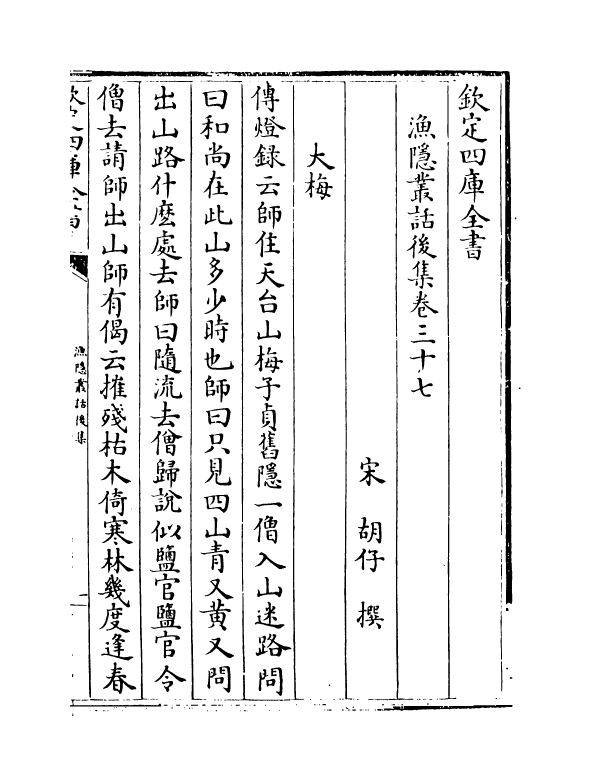 欽定四庫全書
漁隱叢話後集卷三十七
宋 胡仔 撰
大梅
傳燈録云師住天台山梅子貞舊隱一僧入山迷路問
曰和尚在此山多少時也師曰只見四山青又黄又問
出山路什麽處去師曰隨流去僧歸說似鹽官鹽官令
僧去請師出山師有偈云摧殘枯木倚寒林幾度逢春
欽定四庫全書
漁隱叢話後集
一